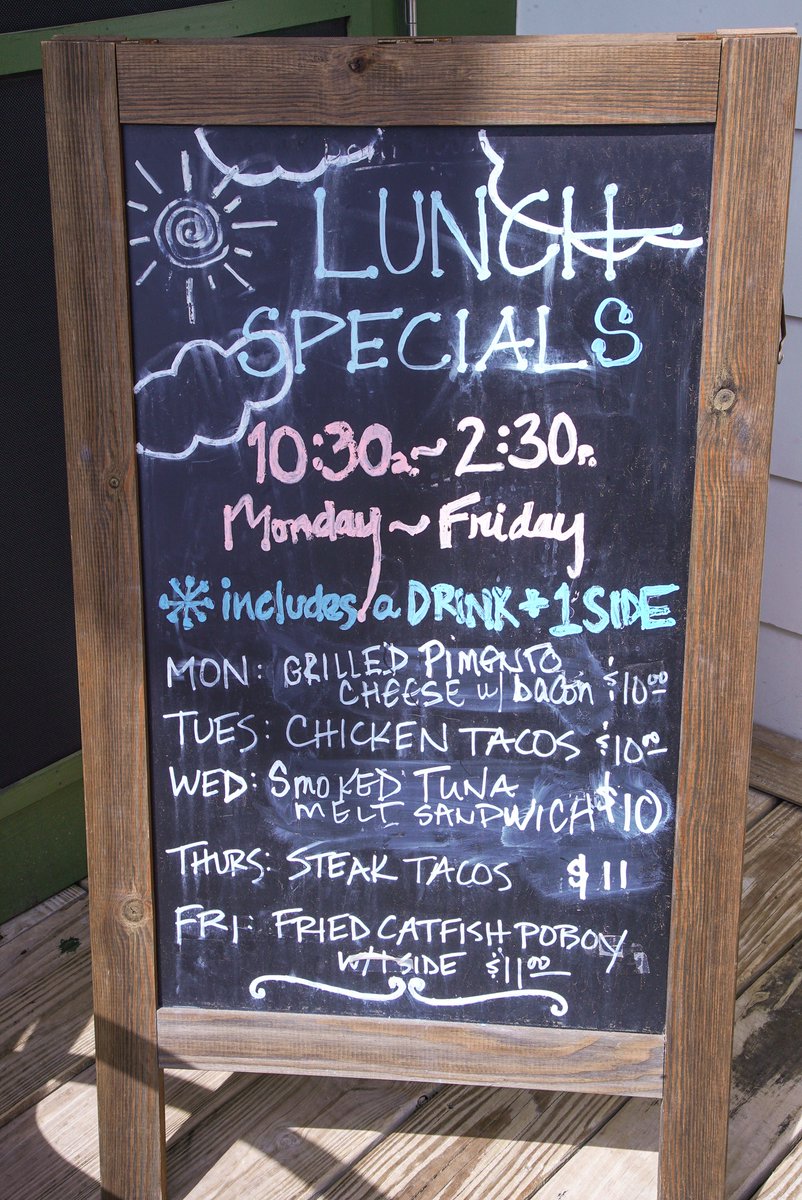 LUNCH
SPECIALS
10:30a.~2:30p.
Monday~Friday
includes a DRINK + 1 SIDE
MON: GRILLED PIMENTO
CHEESE w/ bacon $10.00
TUES: CHICKEN TACOS $10.00
WED: SMOKED TUNA
MELT SANDWICH $10
THURS: STEAK TACOS $11
FRI: FRIED CATFISH POBOY
W/1 SIDE $11.00